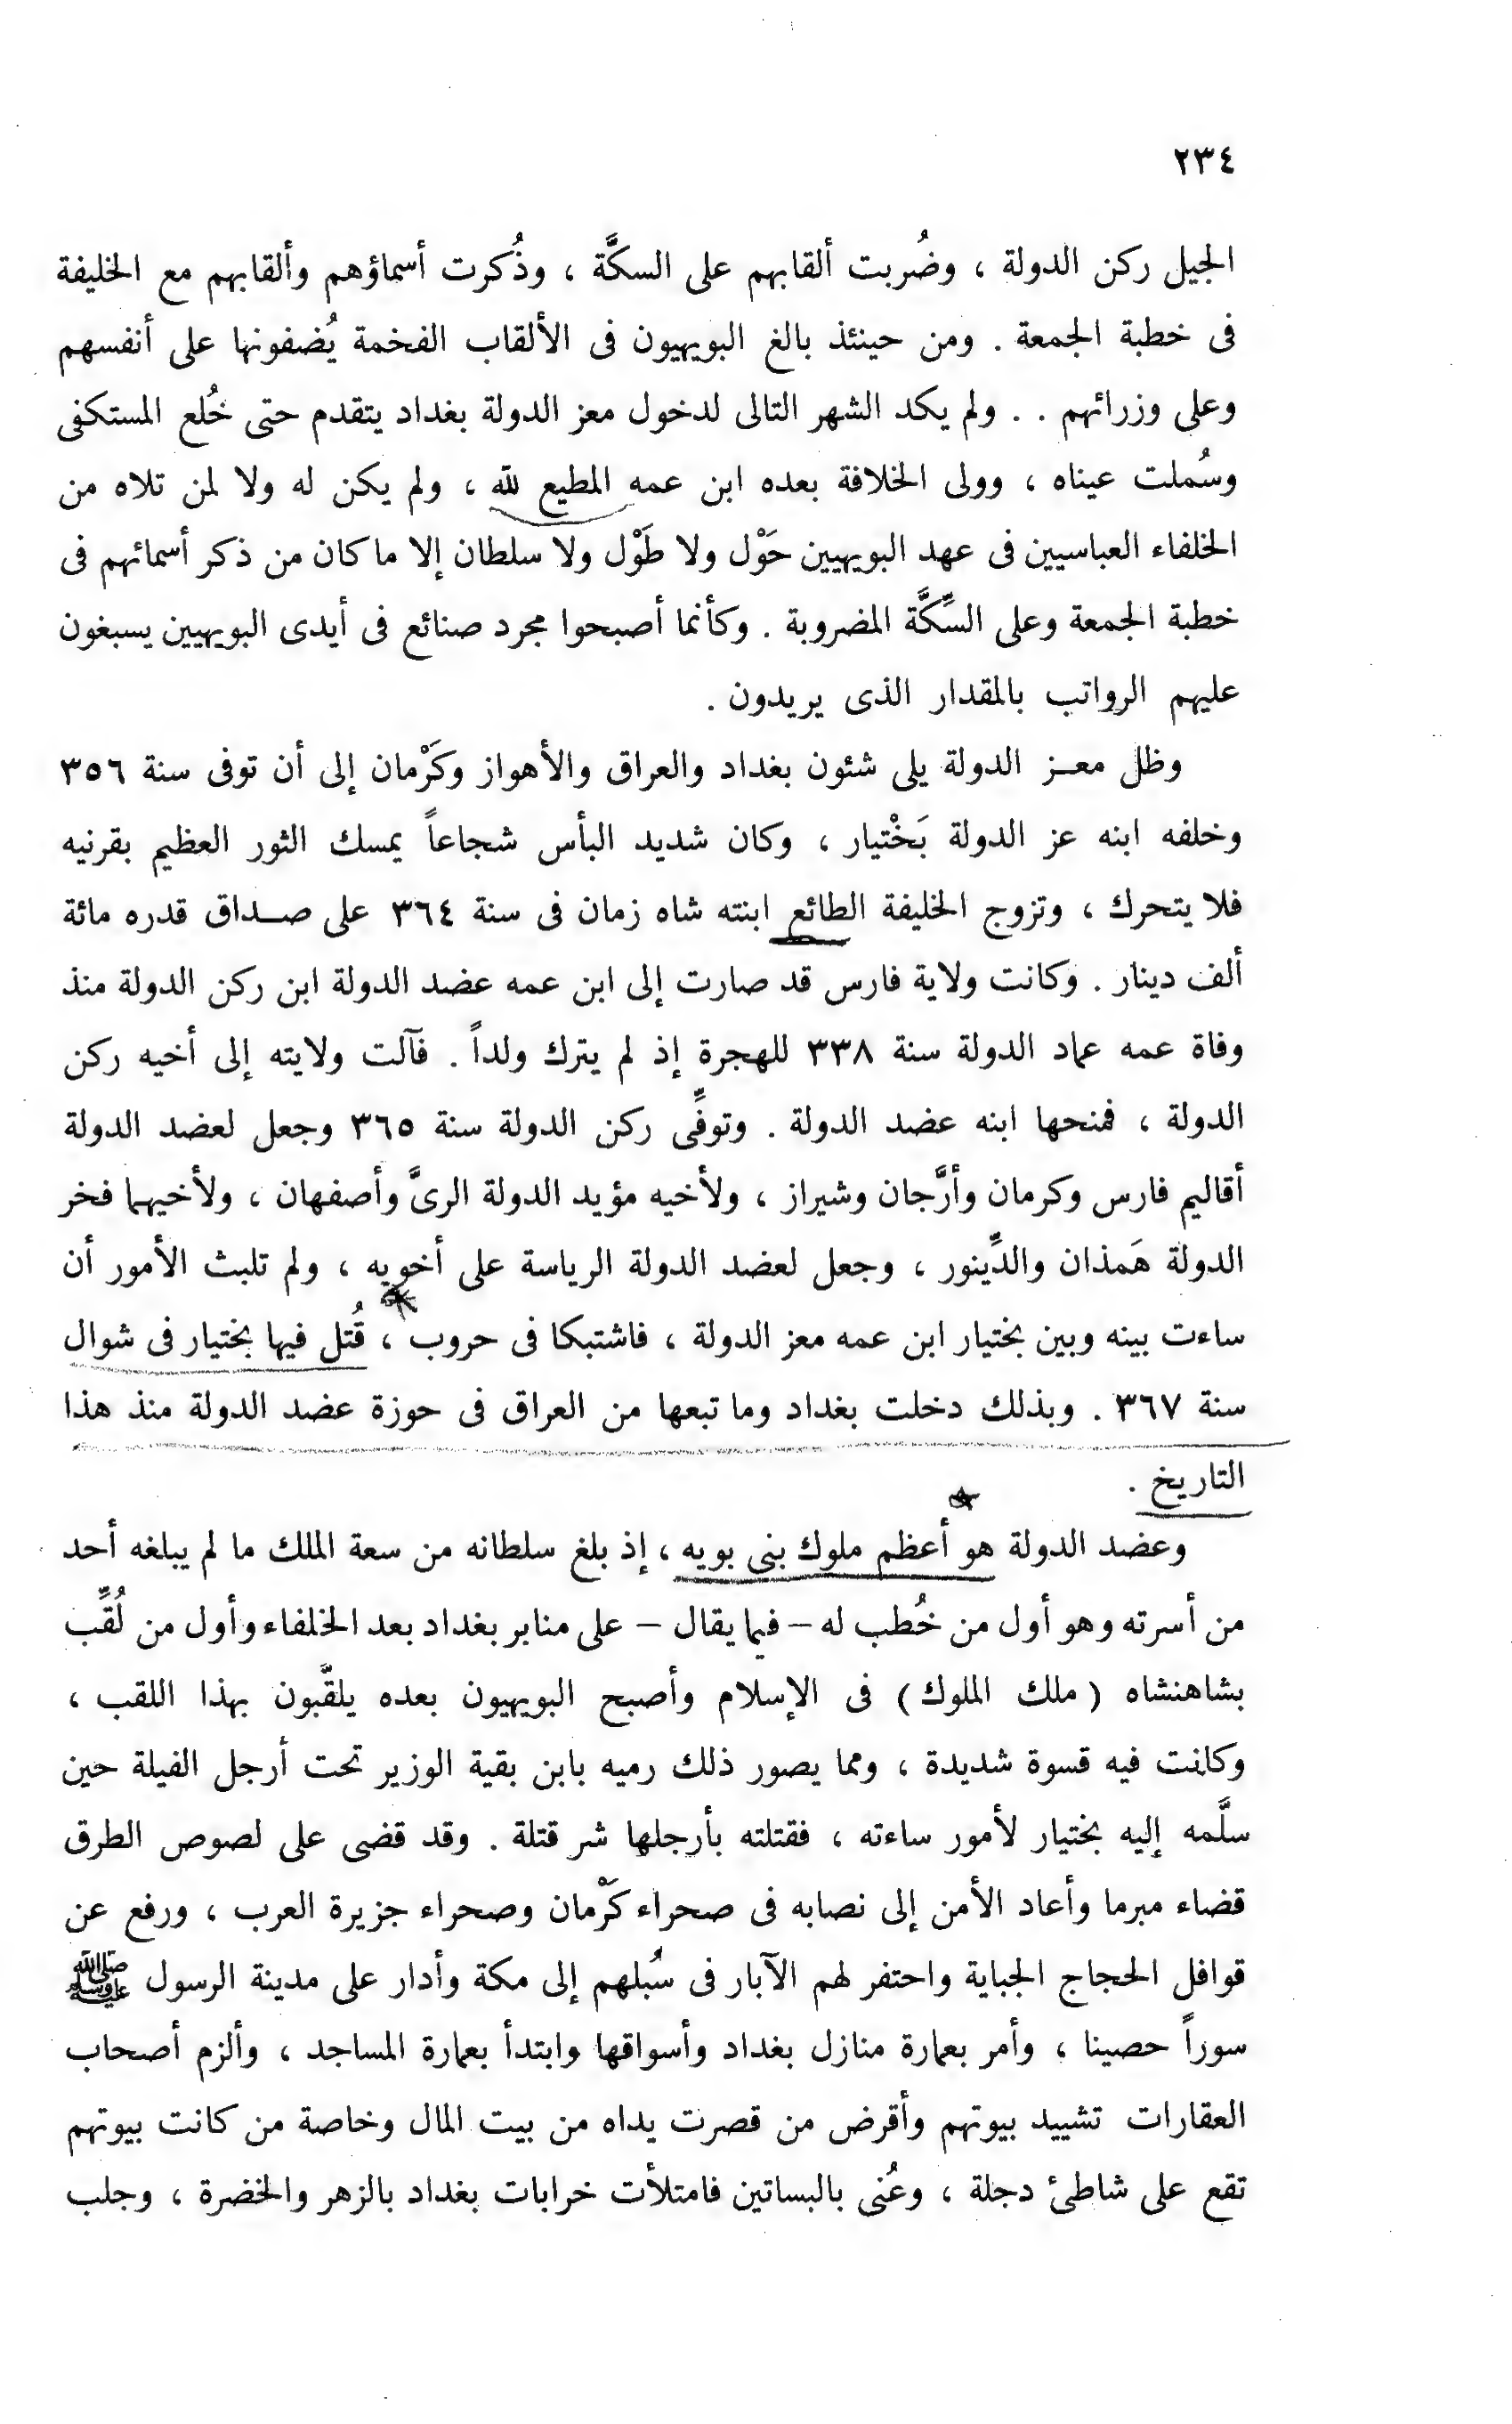 ٢٣٤
الجيل ركن الدولة ، وضُربت ألقابهم على السكَّة ، وذُكرت أسماؤهم وألقابهم مع الخليفة
فى خطبة الجمعة . ومن حينئذ بالغ البويهيون فى الألقاب الفخمة يُضفونها على أنفسهم
وعلى وزرائهم . . ولم يكد الشهر التالى لدخول معز الدولة بغداد يتقدم حتى خُلع المستكفى
وسُملت عيناه ، وولى الخلافة بعده ابن عمه المطيع لله ، ولم يكن له ولا لمن تلاه من
الخلفاء العباسيين فى عهد البويهيين حَوْل ولا طَوْل ولا سلطان إلا ما كان من ذكر أسمائهم فى
خطبة الجمعة وعلى السِّكَّة المضروبة . وكأنما أصبحوا مجرد صنائع فى أيدى البويهيين يسبغون
عليهم الرواتب بالمقدار الذى يريدون .
وظل معز الدولة يلى شئون بغداد والعراق والأهواز وكَرْمان إلى أن توفى سنة ٣٥٦
وخلفه ابنه عز الدولة بَخْتيار ، وكان شديد البأس شجاعاً يمسك الثور العظيم بقرنيه
فلا يتحرك ، وتزوج الخليفة الطائع ابنته شاه زمان فى سنة ٣٦٤ على صداق قدره مائة
ألف دينار . وكانت ولاية فارس قد صارت إلى ابن عمه عضد الدولة ابن ركن الدولة منذ
وفاة عمه عماد الدولة سنة ٣٣٨ للهجرة إذ لم يترك ولداً . فآلت ولايته إلى أخيه ركن
الدولة ، فمنحها ابنه عضد الدولة . وتوفِّى ركن الدولة سنة ٣٦٥ وجعل لعضد الدولة
أقاليم فارس وكرمان وأرَّجان وشيراز ، ولأخيه مؤيد الدولة الرىَّ وأصفهان ، ولأخيهما فخر
الدولة هَمذان والدِّينور ، وجعل لعضد الدولة الرياسة على أخويه ، ولم تلبث الأمور أن
ساءت بينه وبين بختيار ابن عمه معز الدولة ، فاشتبكا فى حروب ، قُتل فيها بختيار فى شوال
سنة ٣٦٧ . وبذلك دخلت بغداد وما تبعها من العراق فى حوزة عضد الدولة منذ هذا
التاريخ .
وعضد الدولة هو أعظم ملوك بنى بويه ، إذ بلغ سلطانه من سعة الملك ما لم يبلغه أحد
من أسرته وهو أول من خُطب له – فيما يقال – على منابر بغداد بعد الخلفاء وأول من لُقِّب
بشاهنشاه ( ملك الملوك ) فى الإسلام وأصبح البويهيون بعده يلقَّبون بهذا اللقب ،
وكانت فيه قسوة شديدة ، ومما يصور ذلك رميه بابن بقية الوزير تحت أرجل الفيلة حين
سلَّمه إليه بختيار لأمور ساءته ، فقتلته بأرجلها شر قتلة . وقد قضى على لصوص الطرق
قضاء مبرما وأعاد الأمن إلى نصابه فى صحراء كَرْمان وصحراء جزيرة العرب ، ورفع عن
قوافل الحجاج الجباية واحتفر لهم الآبار فى سُبلهم إلى مكة وأدار على مدينة الرسول ﷺ
سوراً حصينا ، وأمر بعمارة منازل بغداد وأسواقها وابتدأ بعمارة المساجد ، وألزم أصحاب
العقارات تشييد بيوتهم وأقرض من قصرت يداه من بيت المال وخاصة من كانت بيوتهم
تقع على شاطئ دجلة ، وعُنى بالبساتين فامتلأت خرابات بغداد بالزهر والخضرة ، وجلب